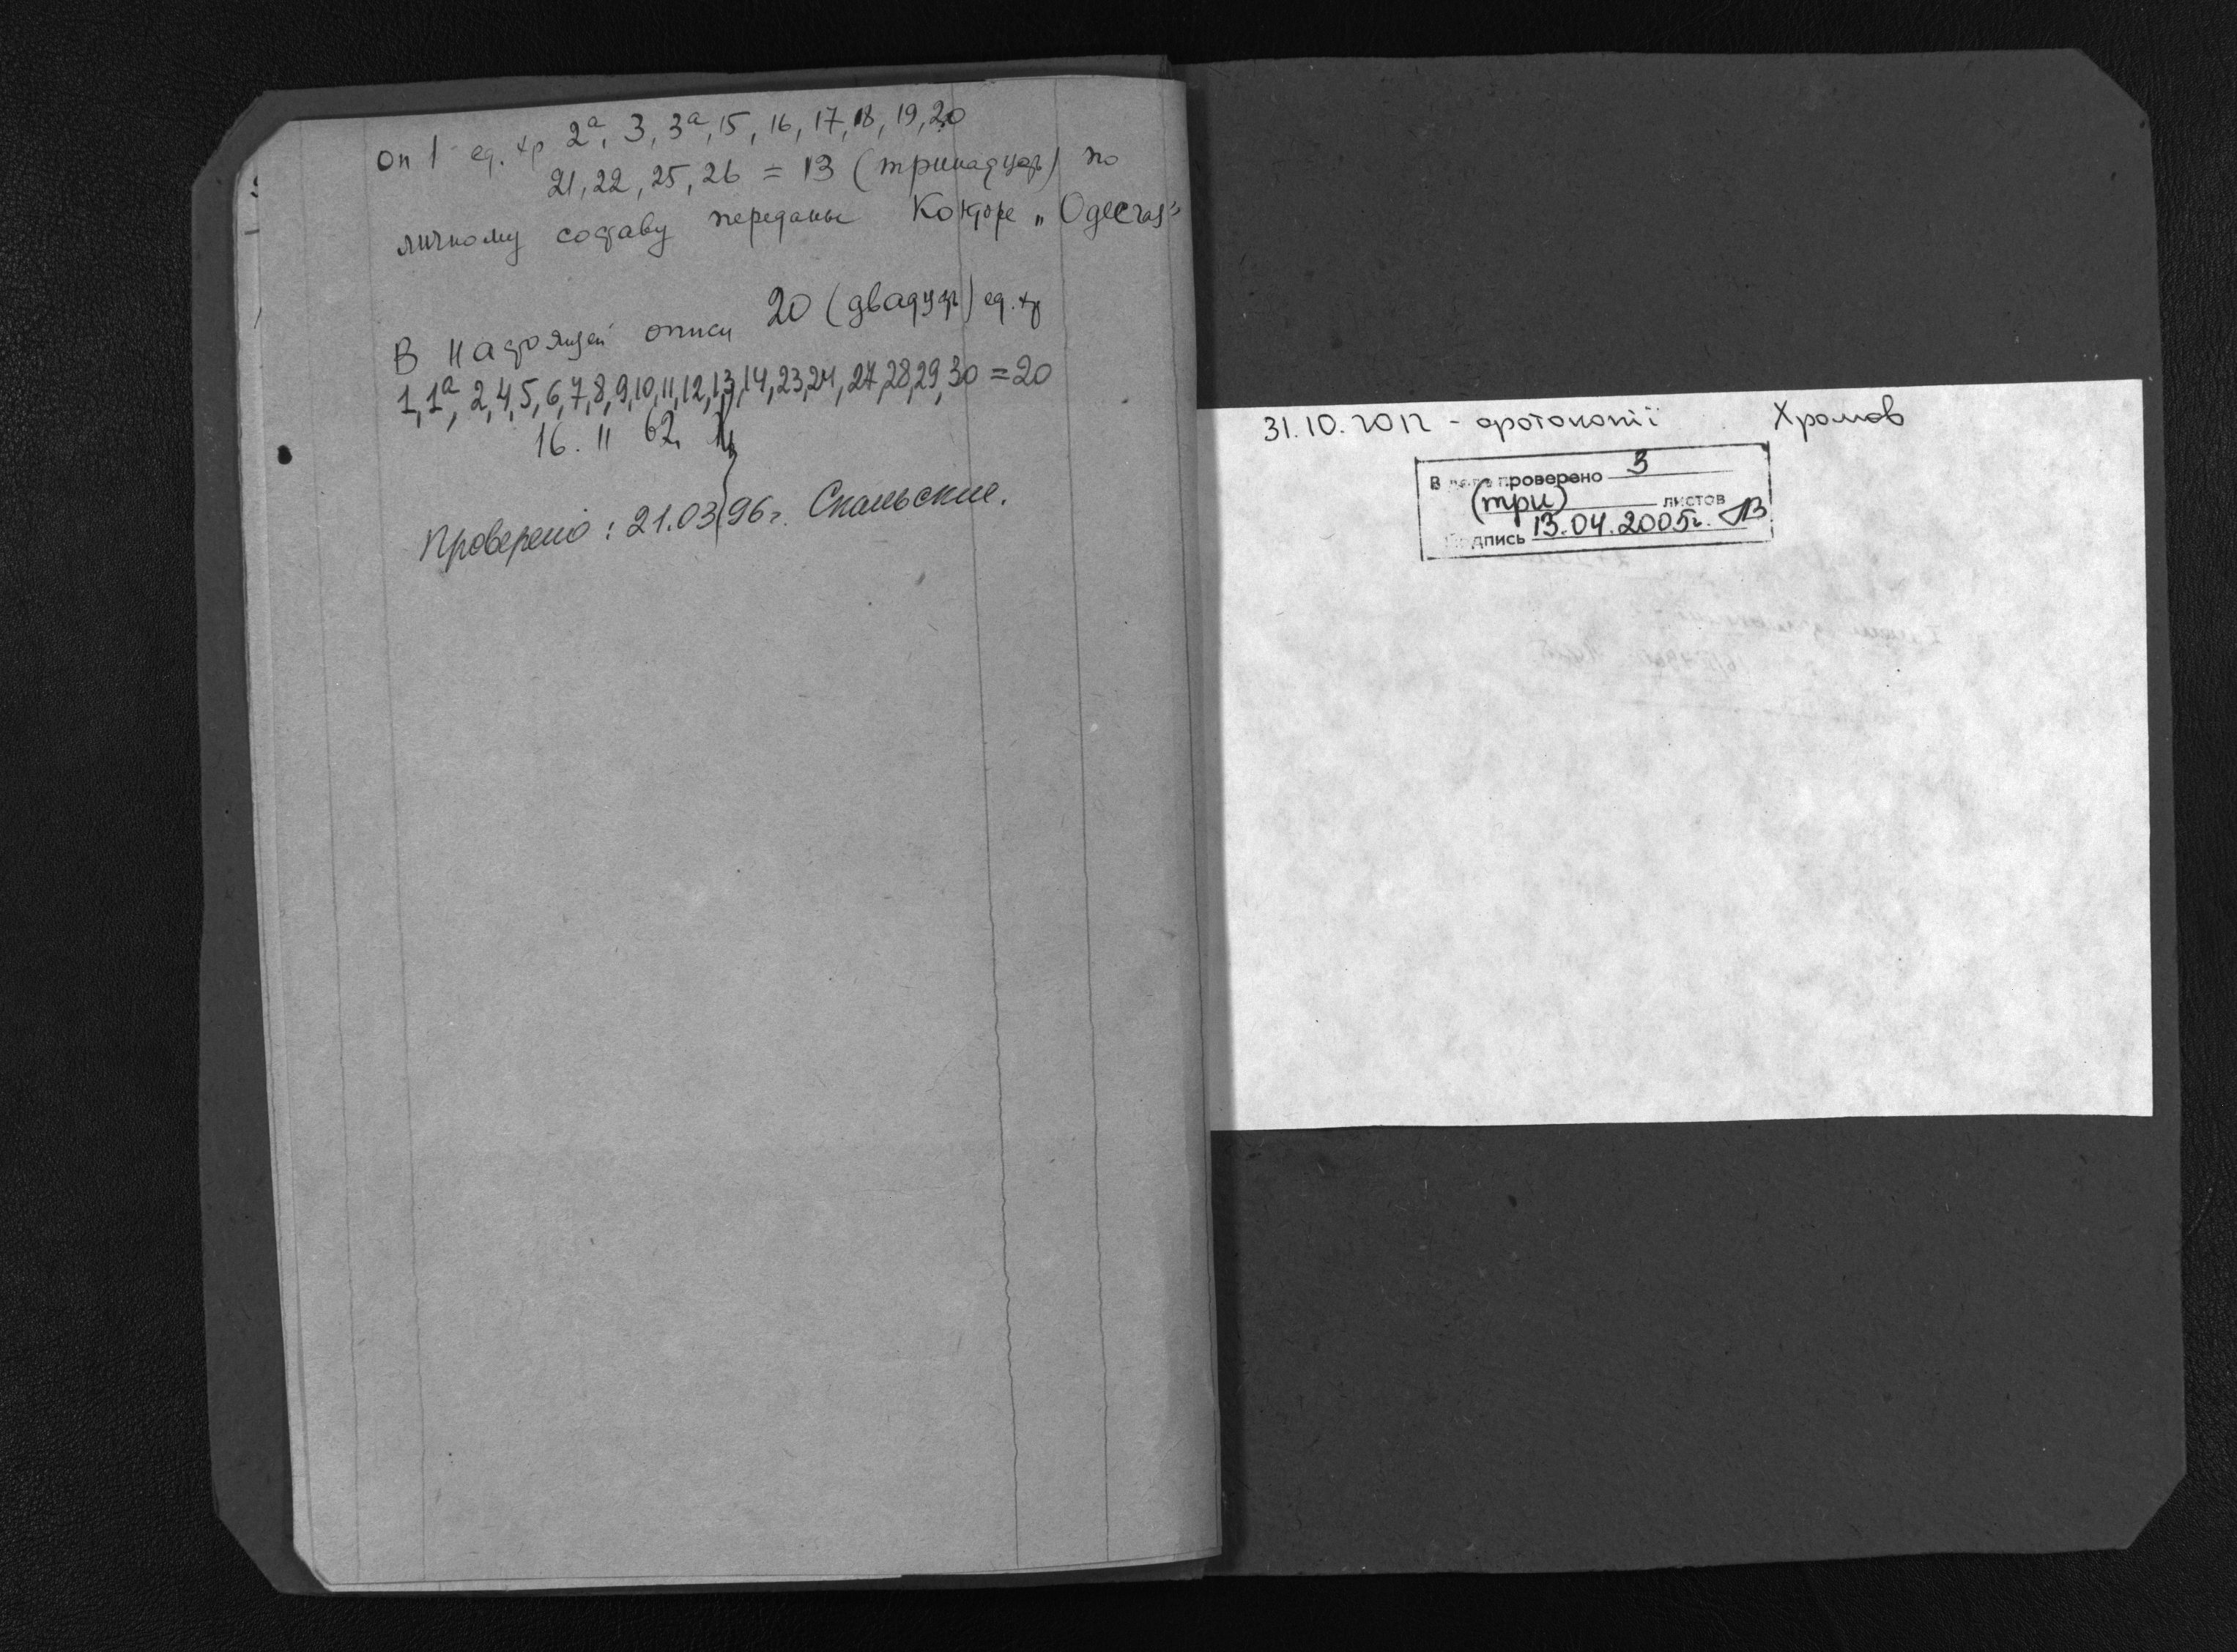 Оп 1 ед. хр 2а, 3, 3а, 15, 16, 17, 18, 19, 20
21, 22, 25, 26 = 13 (тринадцать) по
личному составу переданы Конторе
В настоящей описи 20 (двадцать) ед. хр
1, 1а, 2, 4, 5, 6, 7, 8, 9, 10, 11, 12, 13, 14, 23, 24, 27, 28, 29, 30 = 20
16. II 62
Проверено: 21.03.96 г.
31.10.2012 - фотокопії Хромов
В деле проверено 3
(три) листов
Подпись 13.04.2005г.